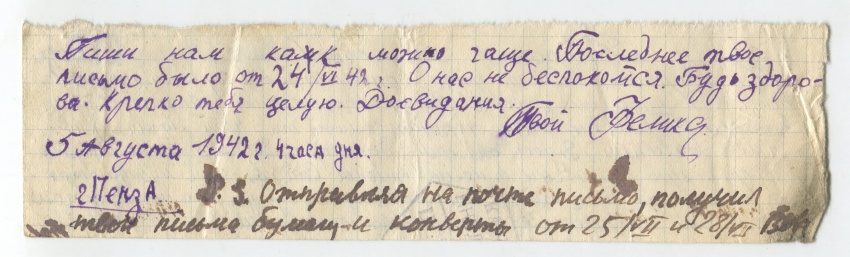 Пиши нам какк можно чаще. Последнее твое
письмо было от 24/VI 42 г. О нас не беспокойся. Будь здоро-
ва. Крепко тебя целую. Досвидания.
Твой Феликс
5 Августа 1942 г. 4 часа дня.
г Пенза P. S. Отправляя на почте письмо, получил
твои письма бумагу и конверты от 25/VII и 28/VI